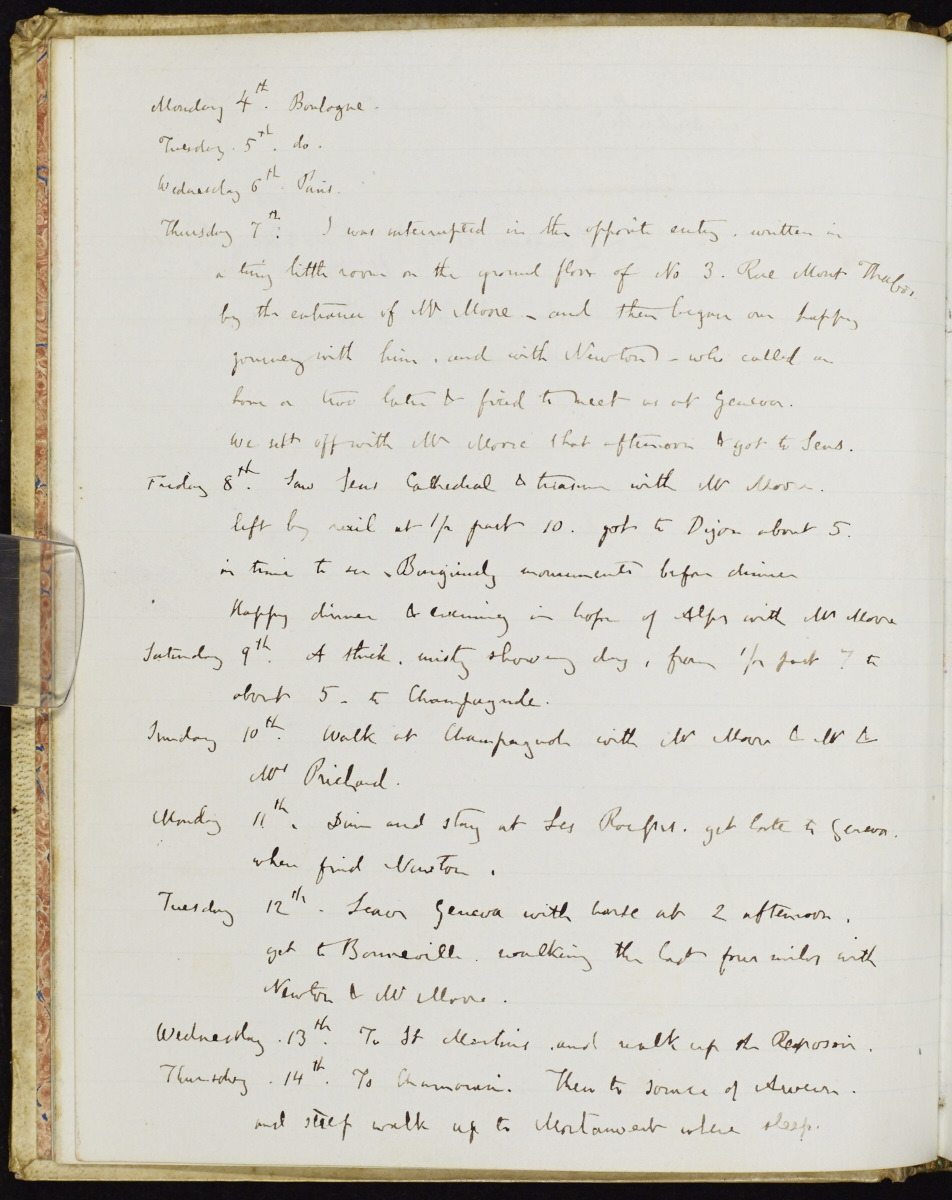 Monday 4th. Boulogne.
Tuesday. 5th. do.
Wednesday 6th. Paris.
Thursday 7th. I was interrupted in the opposite entry, written in
a tiny little room on the ground floor of No 3. Rue Mont Thabor.
by the entrance of Mr Moore - and then began our happy
journey with him, and with Newton - who called an
hour or two later & fixed to meet us at Geneva.
We set off with Mr Moore that afternoon & got to Sens.
Friday 8th. Saw Sens Cathedral & treasure with Mr Moore.
left by rail at 1/2 past 10. got to Dijon about 5.
in time to see Burgundy monuments before dinner
Happy dinner & evening in hope of Alps with Mr Moore
Saturday 9th. A thick, misty showery day, from 1/2 past 7 to
about 5 - to Champagnole.
Sunday 10th. Walk at Champagnole with Mr Moore & Mr &
Mrs Prichard.
Monday 11th. Dine and stay at Les Rousses. get late to Geneva.
when find Newton.
Tuesday 12th. Leave Geneva with horse at 2 afternoon.
get to Bonneville. walking the last four miles with
Newton & Mr Moore.
Wednesday. 13th. To St Martins, and walk up the Reposoir.
Thursday. 14th. To Chamouni. Then to source of Arveron.
and steep walk up to Montanvert where sleep.